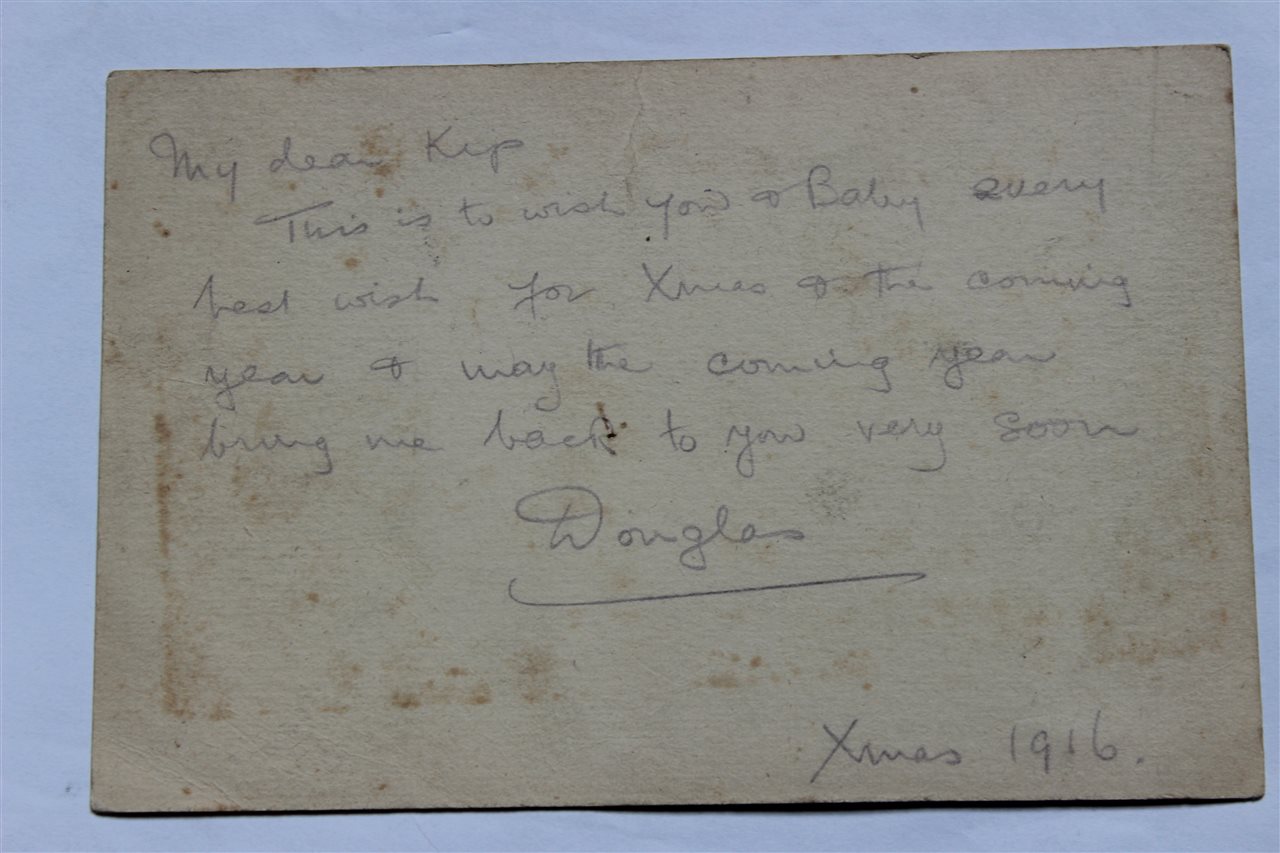 My dear Kip
This is to wish you & Baby every
best wish for Xmas & the coming
year & may the coming year
bring me back to you very soon
Douglas
Xmas 1916.